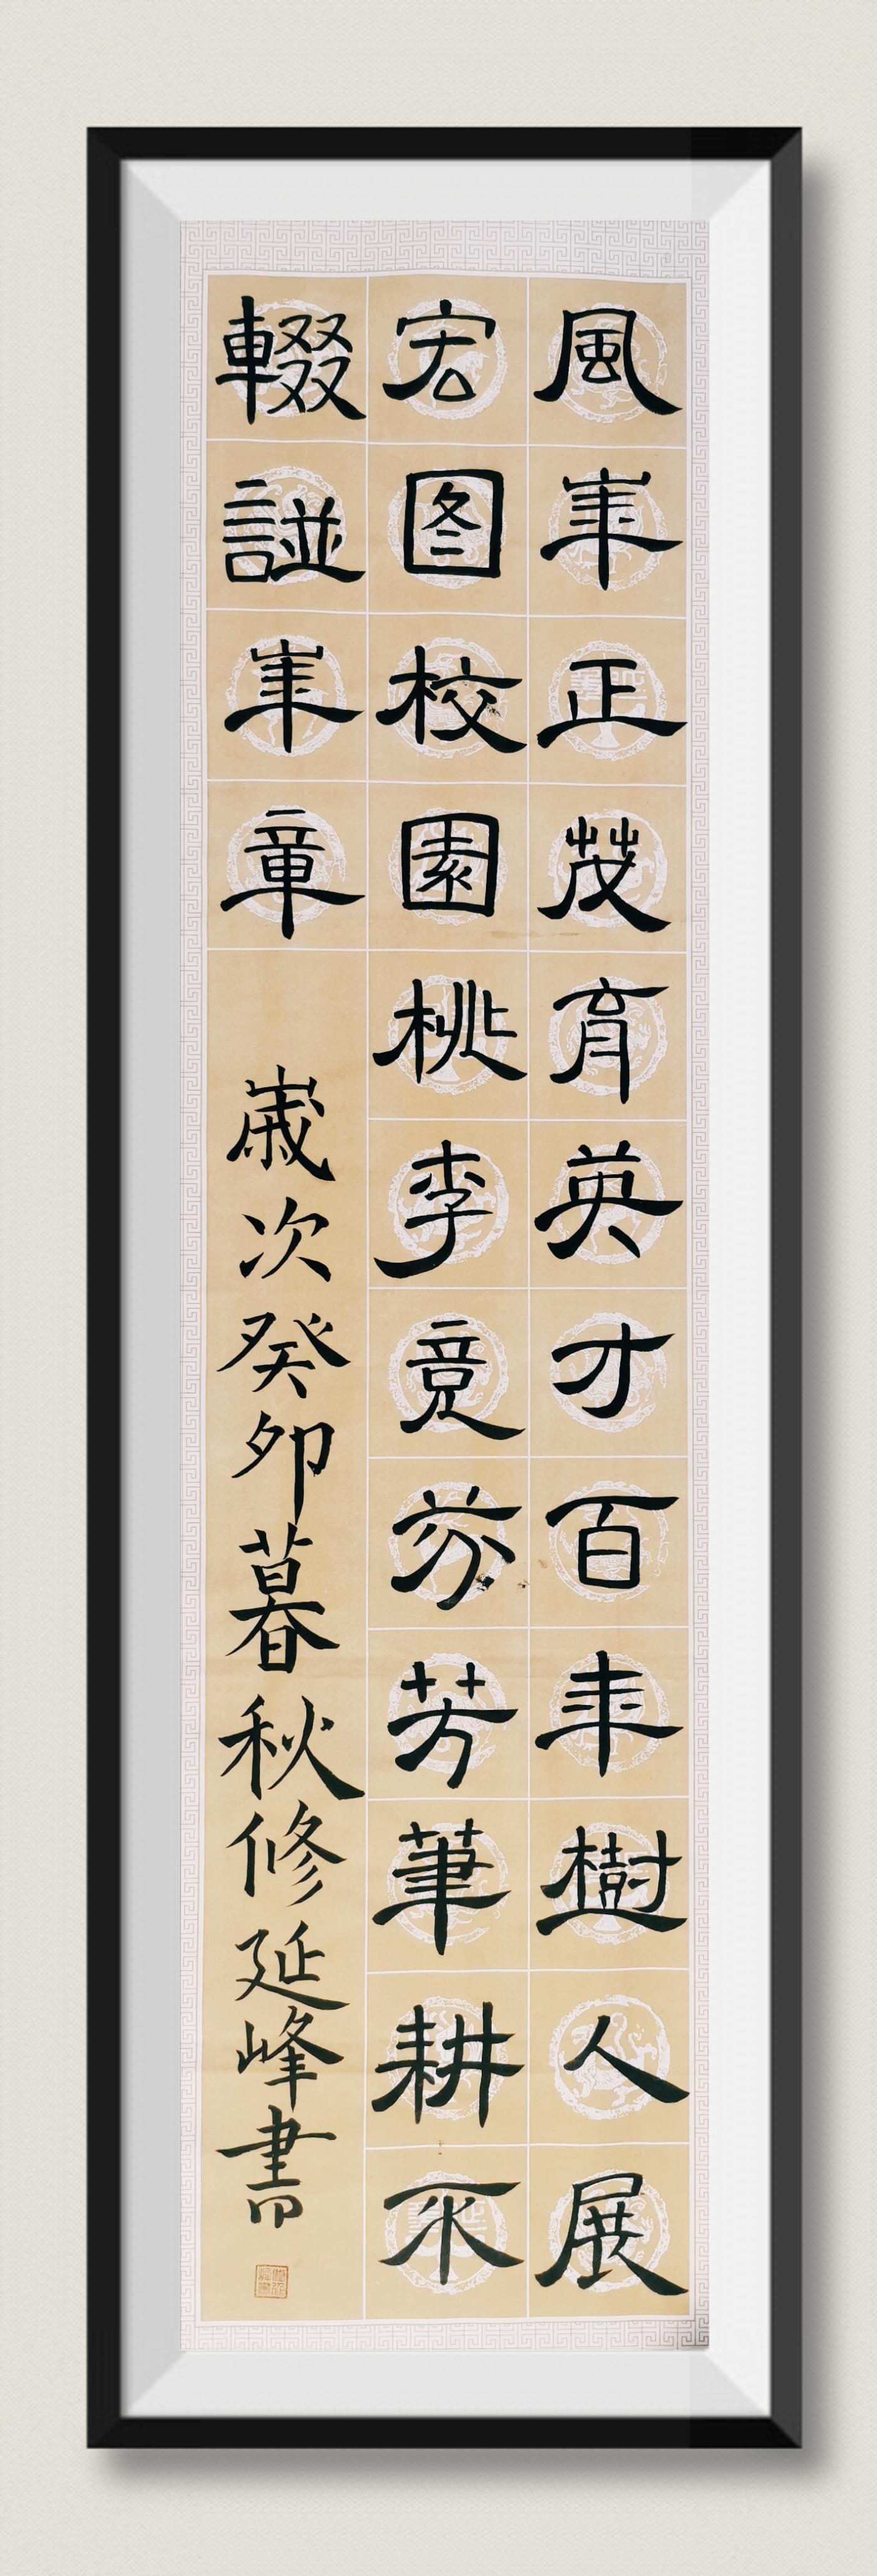 風華正茂育英才百年樹人展
宏图校園桃李竟芬芳筆耕不
輟譜華章
歲次癸卯暮秋修延峰書